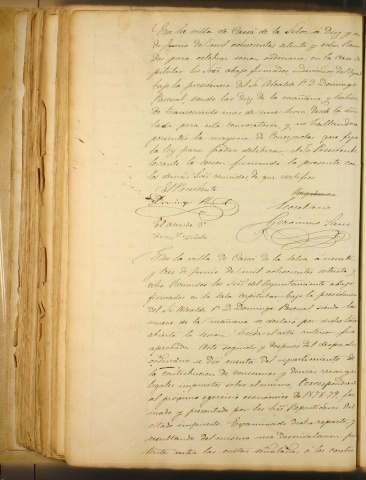 En la villa de Cassá de la Selva a Diez y
de Junio de mil ochocientos setenta y ocho Reuni
dos para celebrar sesion ordinaria en la Casa Ca
pitular los Sres abajo firmados individuos del
bajo la presidencia del Sr Alcalde 1º D. Domingo
Pascual, siendo las Diez de la mañana y habien
do transcurrido mas de una hora desde la seña
lada para esta convocatoria y no hallandose
presentes la mayoria de Concejales que fija
la ley para poder deliberar el Sr Presidente
levantó la sesion firmando la presente con
los demás Sres reunidos de que certifico
El Presidente
Secretario
Geronimo
El Alcalde 2º
En la villa de Cassá de la Selva a veinte
y tres de Junio de mil ochocientos setenta y
ocho Reunidos los Sres del Ayuntamiento abajo
firmados en la sala capitular bajo la presidencia
del Sr Alcalde 1º D. Domingo Pascual siendo las
nueve de la mañana se declaró por dicho Señor
abierta la sesion. Leida el acta anterior fue
aprobada. Acto seguido y despues del despacho
ordinario se dio cuenta del repartimiento de
la contribucion de consumos y demas recargos
legales impuestos sobre el mismo, Correspondiente
al proximo egercicio economico de 1878-79, for
mado y presentado por los Sres Repartidores del
citado impuesto. Examinado dicho reparto, y
resultando del mismo una
entre las cuotas señaladas a los contri